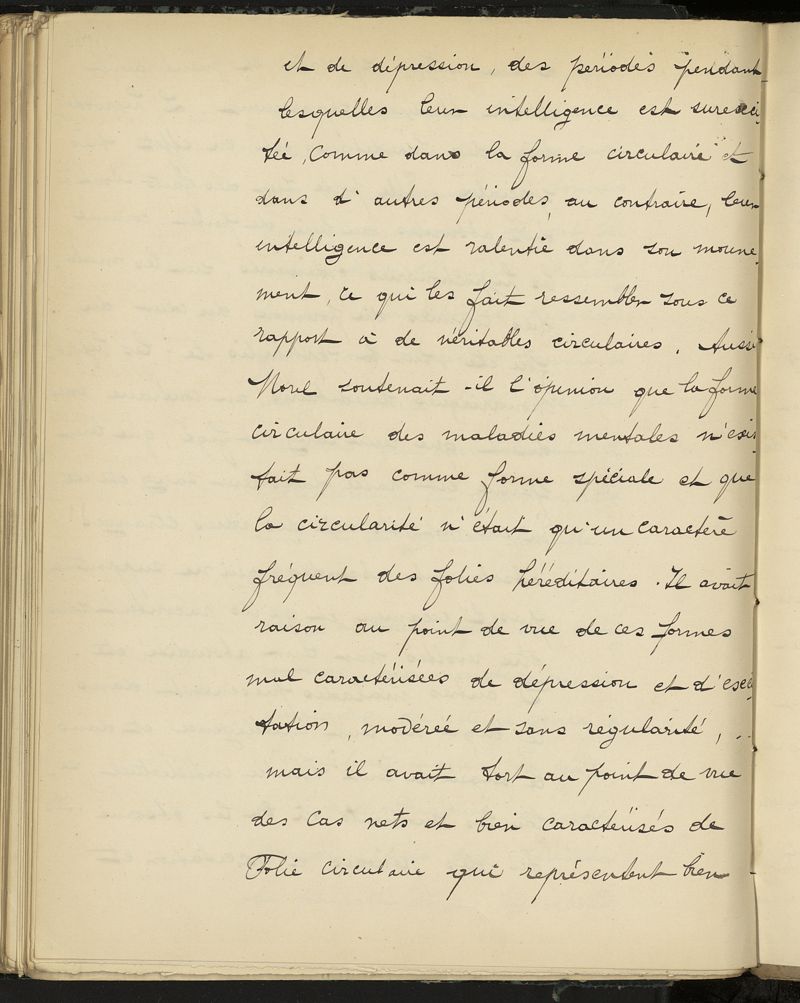 et de dépression, des périodes pendant
lesquelles leur intelligence est surexci-
tée, comme dans la forme circulaire et
dans d'autres périodes, au contraire, leur
intelligence est ralentie dans son mouve-
ment, ce qui les fait ressembler sous ce
rapport à de véritables circulaires. Aussi
Morel soutenait-il l'opinion que la forme
circulaire des maladies mentales n'exis-
tait pas comme forme spéciale et que
la circularité n'était qu'un caractère
fréquent des folies héréditaires. Il avait
raison au point de vue de ces formes
mal caractérisées de dépression et d'exci-
tation, modérée et sans régularité, ..
mais il avait tort au point de vue
des cas nets et bien caractérisés de
Folie circulaire qui représentent bien